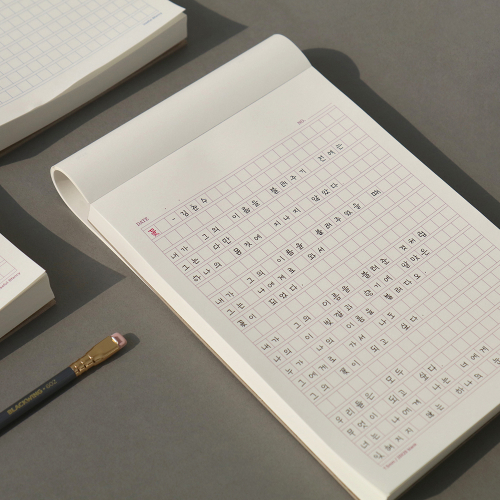 NO.
DATE.
꽃 - 김춘수
내가 그의 이름을 불러주기 전에는
그는 다만
하나의 몸짓에 지나지 않았다
내가 그의 이름을 불러주었을 때
그는 나에게로 와서
꽃이 되었다.
내가 그의 이름을 불러준 것처럼
나의 이 빛깔과 향기에 알맞은
누가 나의 이름을 불러다오.
그에게로 가서 나도
그의 꽃이 되고 싶다
우리들은 모두
무엇이 되고 싶다
너는 나에게 나는 너에게
잊혀지지 않는 하나의
BLACKWING